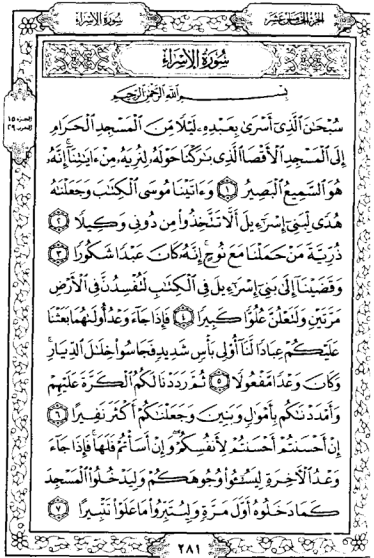 سُورَةُ الإِسْرَاءِ
الجزء الخامس عشر
الجزء ١٥
الحزب ٢٩
سُورَةُ الإِسْرَاءِ
بِسْمِ اللَّهِ الرَّحْمَٰنِ الرَّحِيمِ
سُبْحَٰنَ الَّذِىٓ أَسْرَىٰ بِعَبْدِهِۦ لَيْلًا مِّنَ الْمَسْجِدِ الْحَرَامِ
إِلَى الْمَسْجِدِ الْأَقْصَا الَّذِى بَٰرَكْنَا حَوْلَهُۥ لِنُرِيَهُۥ مِنْ ءَايَٰتِنَآ ۚ إِنَّهُۥ
هُوَ السَّمِيعُ الْبَصِيرُ ١ وَءَاتَيْنَا مُوسَى الْكِتَٰبَ وَجَعَلْنَٰهُ
هُدًى لِّبَنِىٓ إِسْرَٰٓءِيلَ أَلَّا تَتَّخِذُوا۟ مِن دُونِى وَكِيلًا ٢
ذُرِّيَّةَ مَنْ حَمَلْنَا مَعَ نُوحٍ ۚ إِنَّهُۥ كَانَ عَبْدًا شَكُورًا ٣
وَقَضَيْنَآ إِلَىٰ بَنِىٓ إِسْرَٰٓءِيلَ فِى الْكِتَٰبِ لَتُفْسِدُنَّ فِى الْأَرْضِ
مَرَّتَيْنِ وَلَتَعْلُنَّ عُلُوًّا كَبِيرًا ٤ فَإِذَا جَآءَ وَعْدُ أُولَىٰهُمَا بَعَثْنَا
عَلَيْكُمْ عِبَادًا لَّنَآ أُو۟لِى بَأْسٍ شَدِيدٍ فَجَاسُوا۟ خِلَٰلَ الدِّيَارِ ۚ
وَكَانَ وَعْدًا مَّفْعُولًا ٥ ثُمَّ رَدَدْنَا لَكُمُ الْكَرَّةَ عَلَيْهِمْ
وَأَمْدَدْنَٰكُم بِأَمْوَٰلٍ وَبَنِينَ وَجَعَلْنَٰكُمْ أَكْثَرَ نَفِيرًا ٦
إِنْ أَحْسَنتُمْ أَحْسَنتُمْ لِأَنفُسِكُمْ ۖ وَإِنْ أَسَأْتُمْ فَلَهَا ۚ فَإِذَا جَآءَ
وَعْدُ الْءَاخِرَةِ لِيَسُۥٓـُٔوا۟ وُجُوهَكُمْ وَلِيَدْخُلُوا۟ الْمَسْجِدَ
كَمَا دَخَلُوهُ أَوَّلَ مَرَّةٍ وَلِيُتَبِّرُوا۟ مَا عَلَوْا۟ تَتْبِيرًا ٧
٢٨١